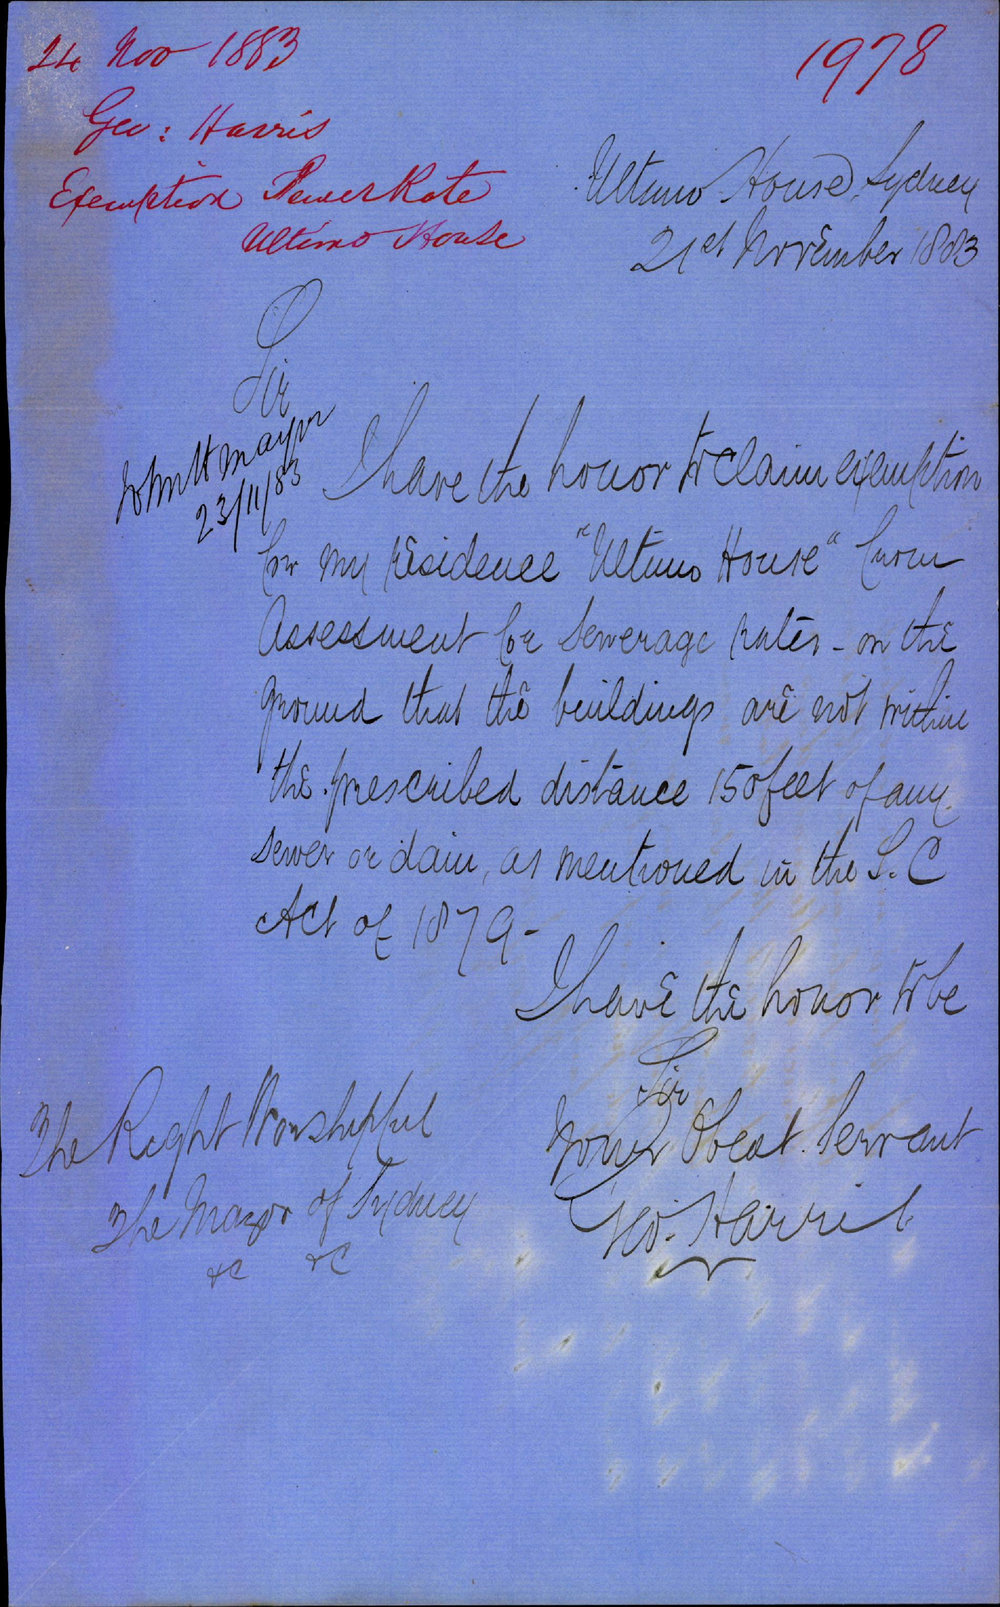 24 Nov 1883
1978
Geo: Harris
Exemption Sewer Rate
Ultimo House
Ultimo House, Sydney
21st November 1883
Sir
John H Mayor
23/11/83
I have the honor to claim exemption
for my residence "Ultimo House" from
Assessment for Sewerage rates - on the
ground that the buildings are not within
the prescribed distance 150 feet of any
sewer or dain, as mentioned in the S. C
Act of 1879 -
I have the honor to be
Sir
Your Obedt. Servant
Geo. Harris
The Right Worshipful
The Mayor of Sydney
&c &c